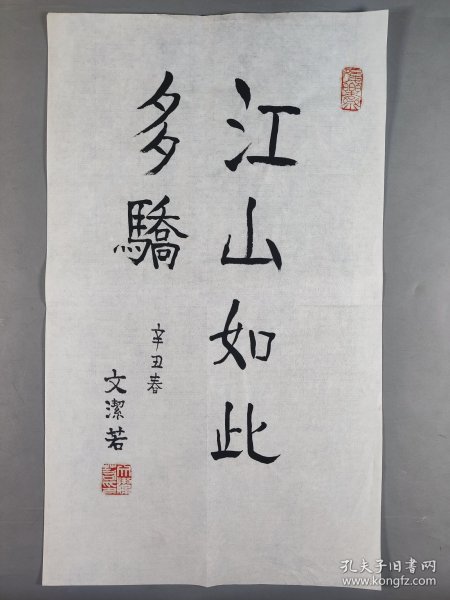 江山如此
多驕
辛丑春
文潔若
孔夫子旧书网
www.kongfz.com